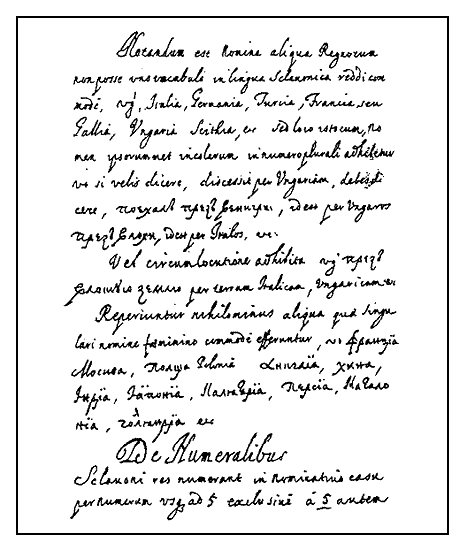 Notandum est Nomina aliqua Regnorum
non posse uno vocabulo in lingua Sclavonica reddi com
mode, vg. Italia, Germania, Turcia, Francia, seu
Gallia, Ungaria Scithia, etc sed loco istorum, No
men ipsorummet incolarum in numero plurali adhibetur
ut si velis dicere, discessit per Ungariam, debes di
cere, поехалъ презъ Венгри, id est per Ungaros
презъ Влахи, id est per Italos, etc.
Vel circumlocutione adhibita vg презъ
землю per terram Italicam, Ungaricam etc
Reperiuntur nihilominus aliqua quæ singu
lari nomine fæminino commode efferuntur, ut Францїа
Москва, Полща Polonia Англїа, Хина,
Індїа, Іапонїа, Персїа, Катало
нїа, Голландїа etc
De Numeralibus
Sclavoni res numerant in Nominativo casu
per numerum usq ad 5 exclusive à 5 autem